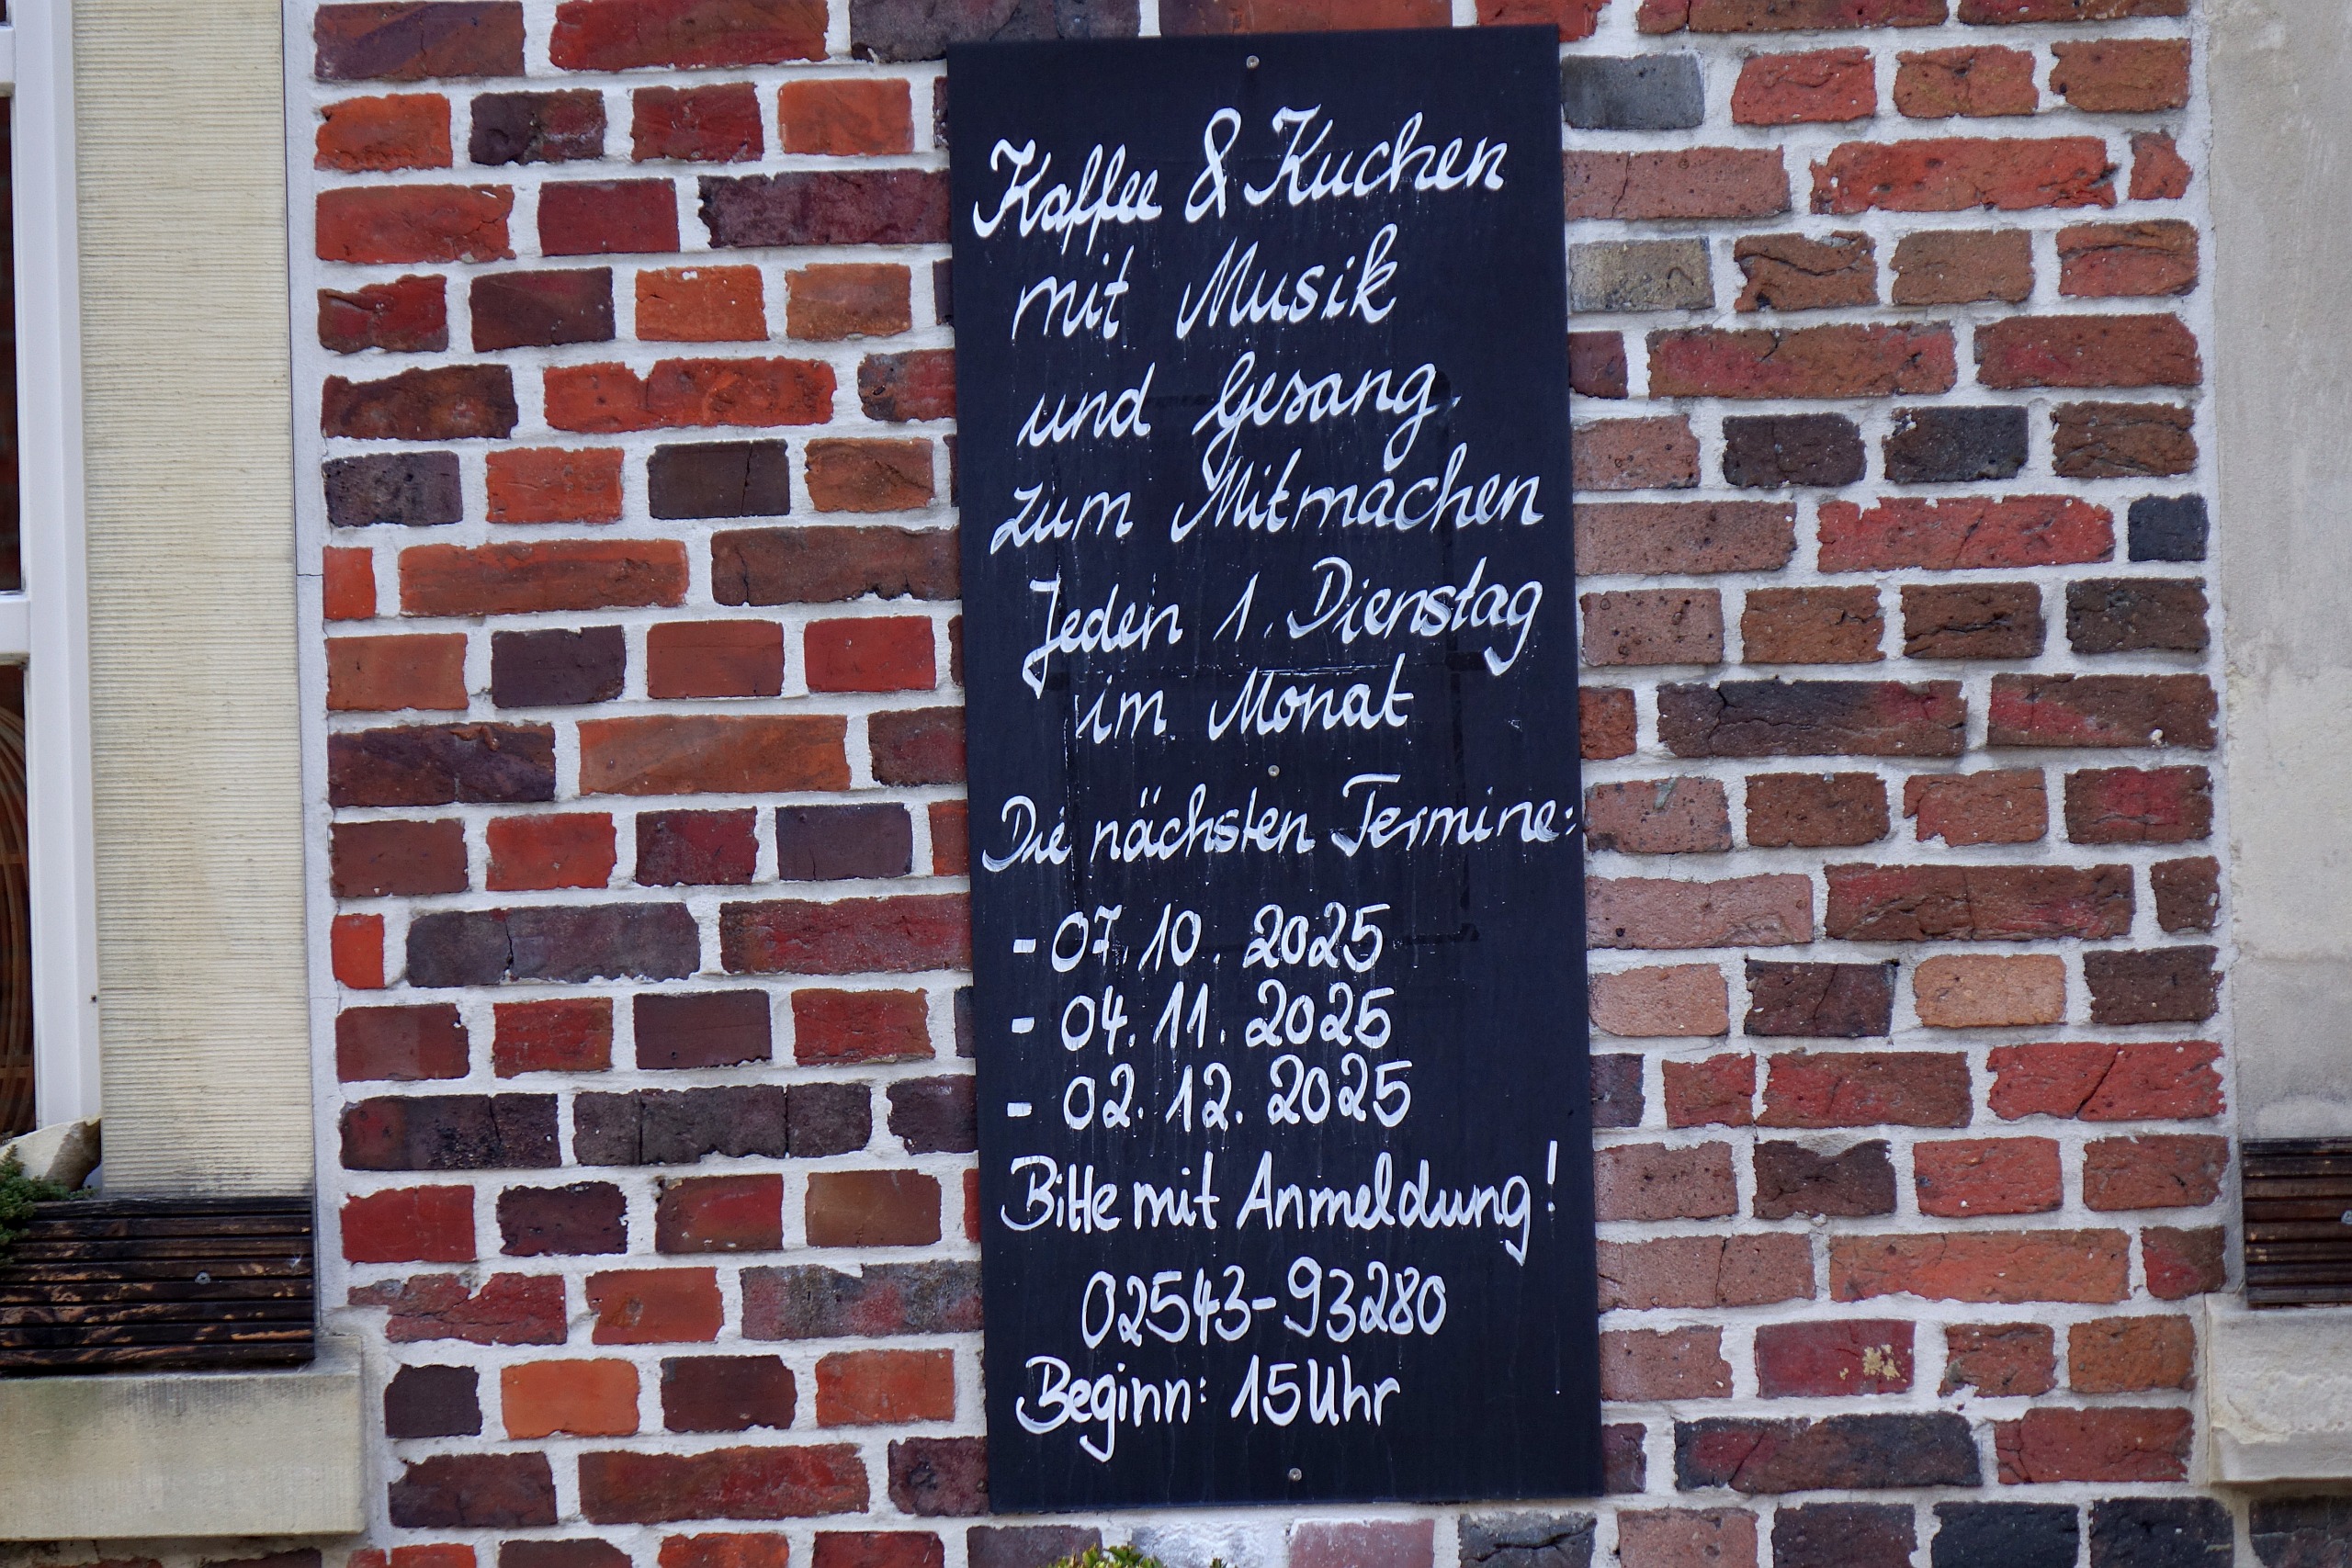 Kaffee & Kuchen
mit Musik
und Gesang.
zum Mitmachen
Jeden 1. Dienstag
im Monat
Die nächsten Termine:
- 07.10.2025
- 04.11.2025
- 02.12.2025
Bitte mit Anmeldung!
02543-93280
Beginn: 15 Uhr